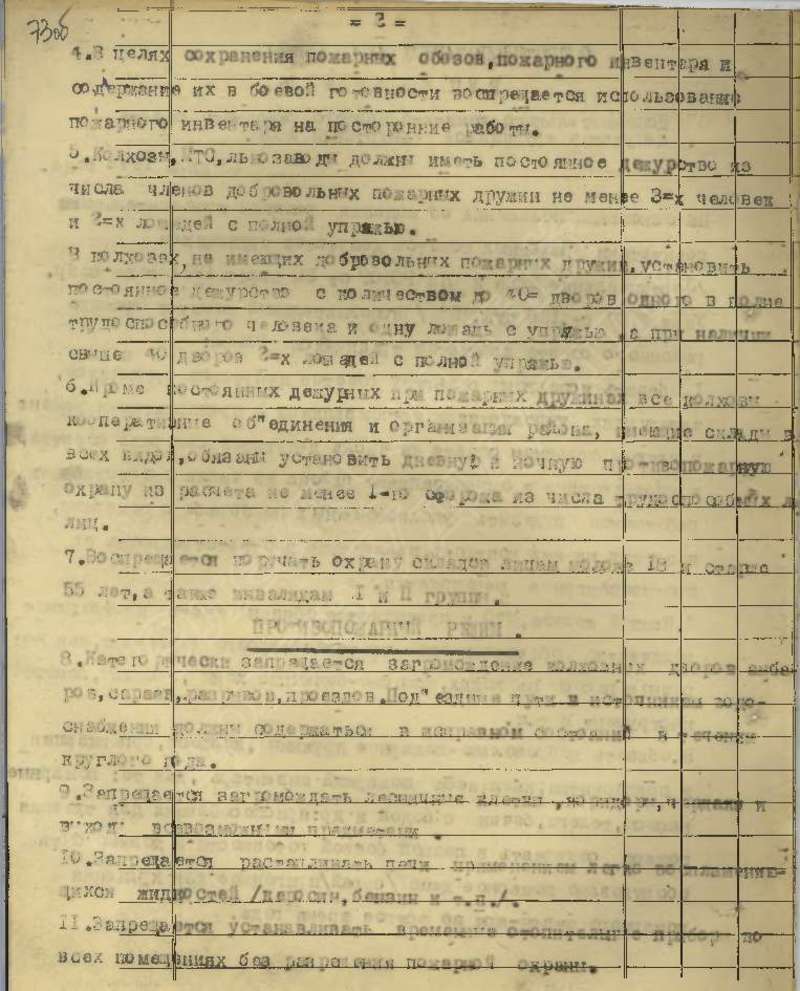 73об
= 2 =
4.В целях сохранения пожарных обозов,пожарного инвентаря и
содержание их в боевой готовности воспрещается использование
пожарного инвентаря на посторонние работы.
5.Колхозы,МТС,льнозаводы должны иметь постоянное дежурство из
числа членов добровольных пожарных дружин не менее 3=х человек
и 2=х лошадей с полной упряжью.
В колхозах,не имеющих добровольных пожарных дружин,установить
постоянное дежурство с количеством до 40= дворов одного вполне
трудоспособного человека и одну лошадь с упряжью ,а при наличии
свыше 40 дворов 2=х лошадей с полной упряжью.
6.Кроме постоянных дежурных при пожарных дружинах все колхозы
кооперативные об"единения и организации района, имеющие склады
всех видов,обязаны установить дневную и ночную противопожарную
охрану из расчета не менее 1-го сторожа из числа трудоспособных
лиц.
7.Воспрещается поручать охрану складов лицам моложе 18 и старше
55 лет,а также инвалидам I и II групп.
ПРОТИВОПОЖАРНЫЙ РЕЖИМ.
8.Категорически запрещается загромождение колхозных дворов амба-
ров,сараев, проездов.Под"ездные пути и источники водо-
снабжения должны содержаться в исправном состоянии в течение
круглого года.
9.Запрещается загромождать лестничные клетки ,коридоры,чердаки и
выходы всевозможными предметами .
10.Запрещается растапливать печи применением легко воспламеняю-
щихся жидкостей /керосин,бензин и т.п./.
11.Запрещается устанавливать временные отопительные приборы во
всех помещениях без разрешения пожарной охраны.